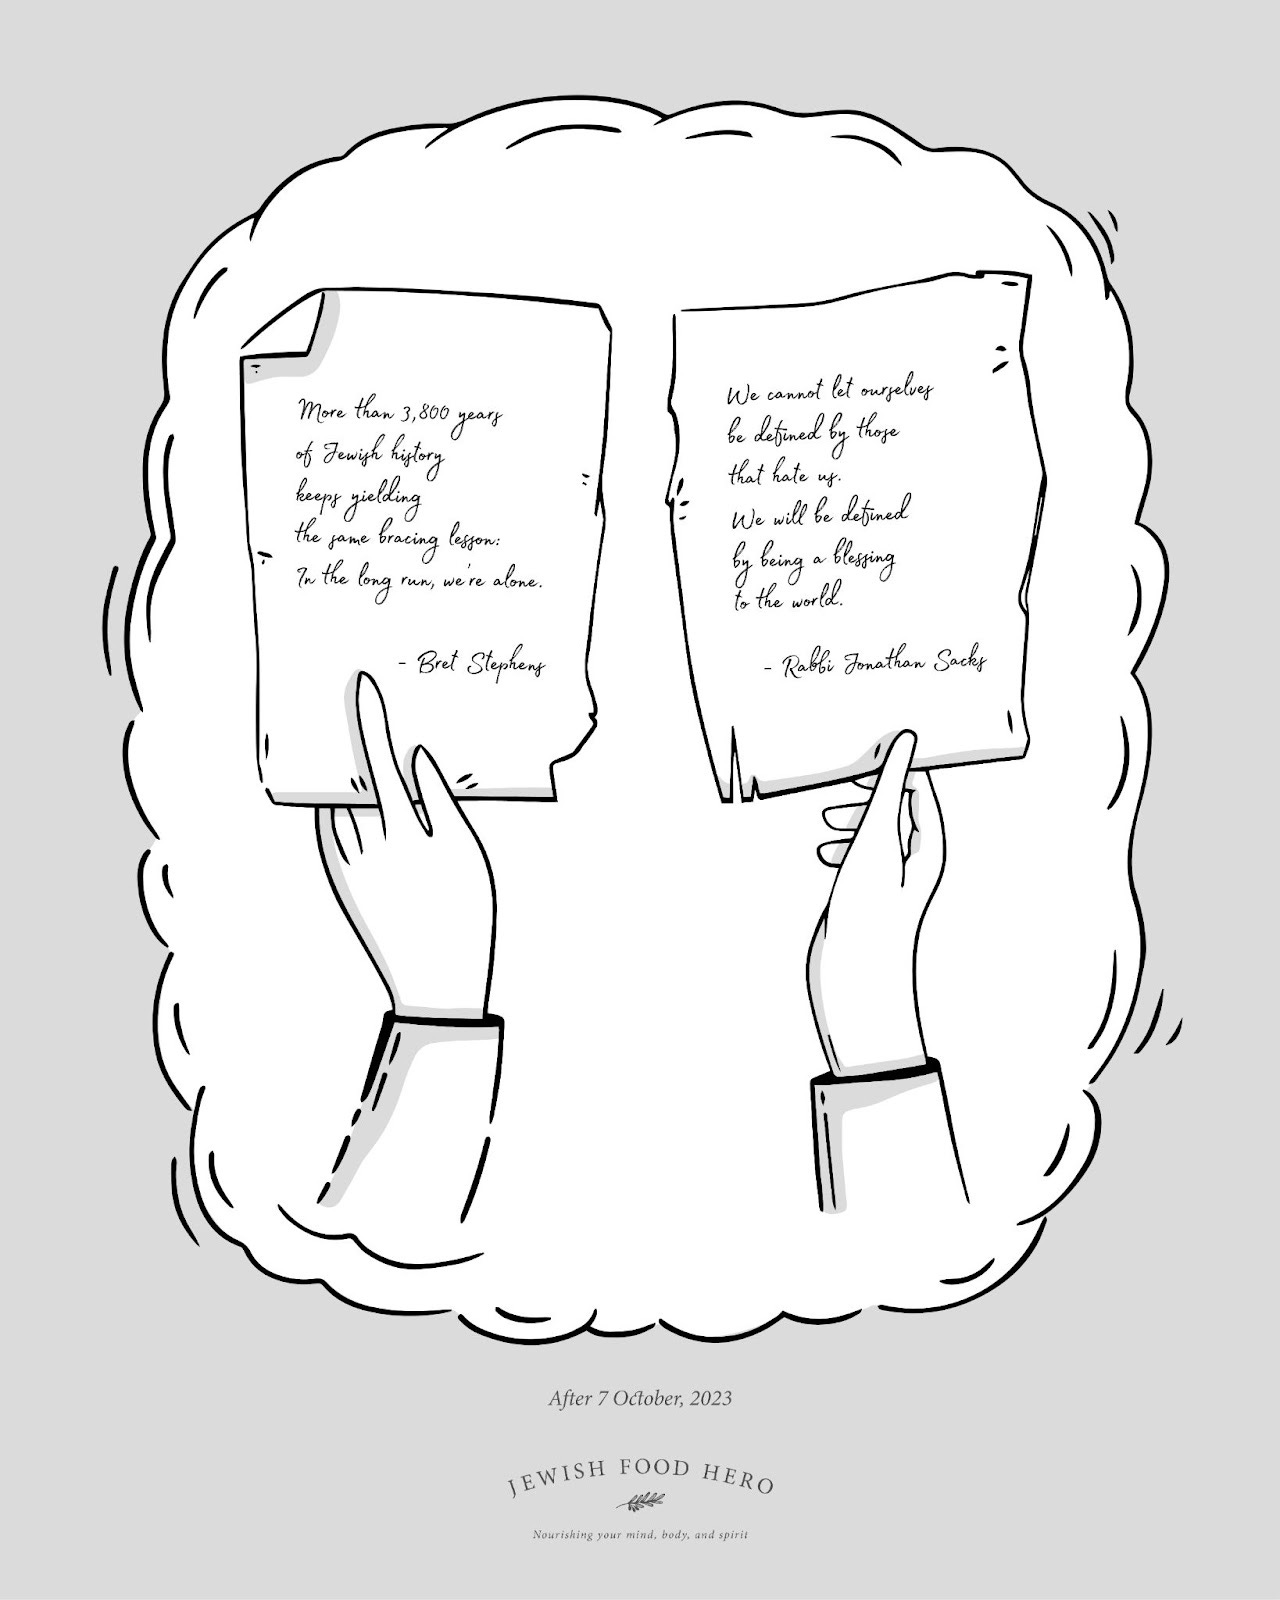 More than 3,800 years
of Jewish history
keeps yielding
the same bracing lesson:
In the long run, we're alone.
- Bret Stephens
We cannot let ourselves
be defined by those
that hate us.
We will be defined
by being a blessing
to the world.
- Rabbi Jonathan Sacks
After 7 October, 2023
JEWISH FOOD HERO
Nourishing your mind, body, and spirit